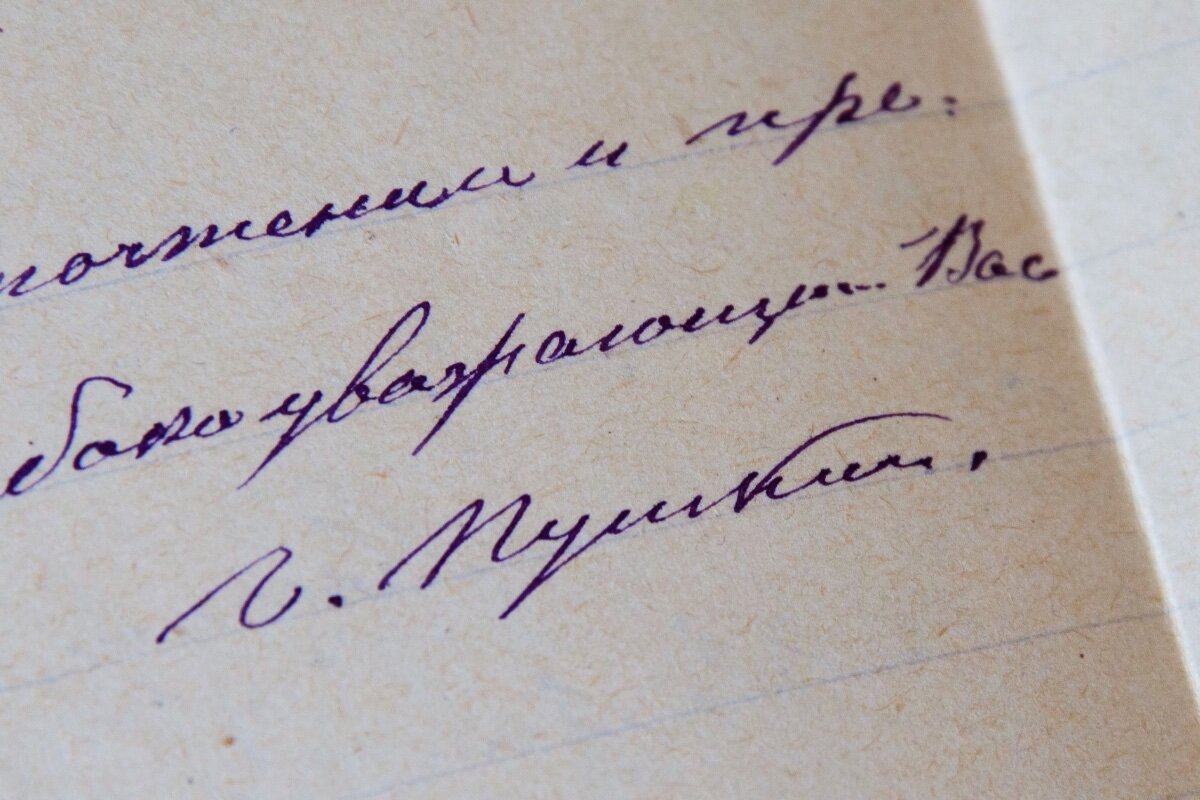 почтении и пре-
боко уважающий Вас
г. Пушкин.